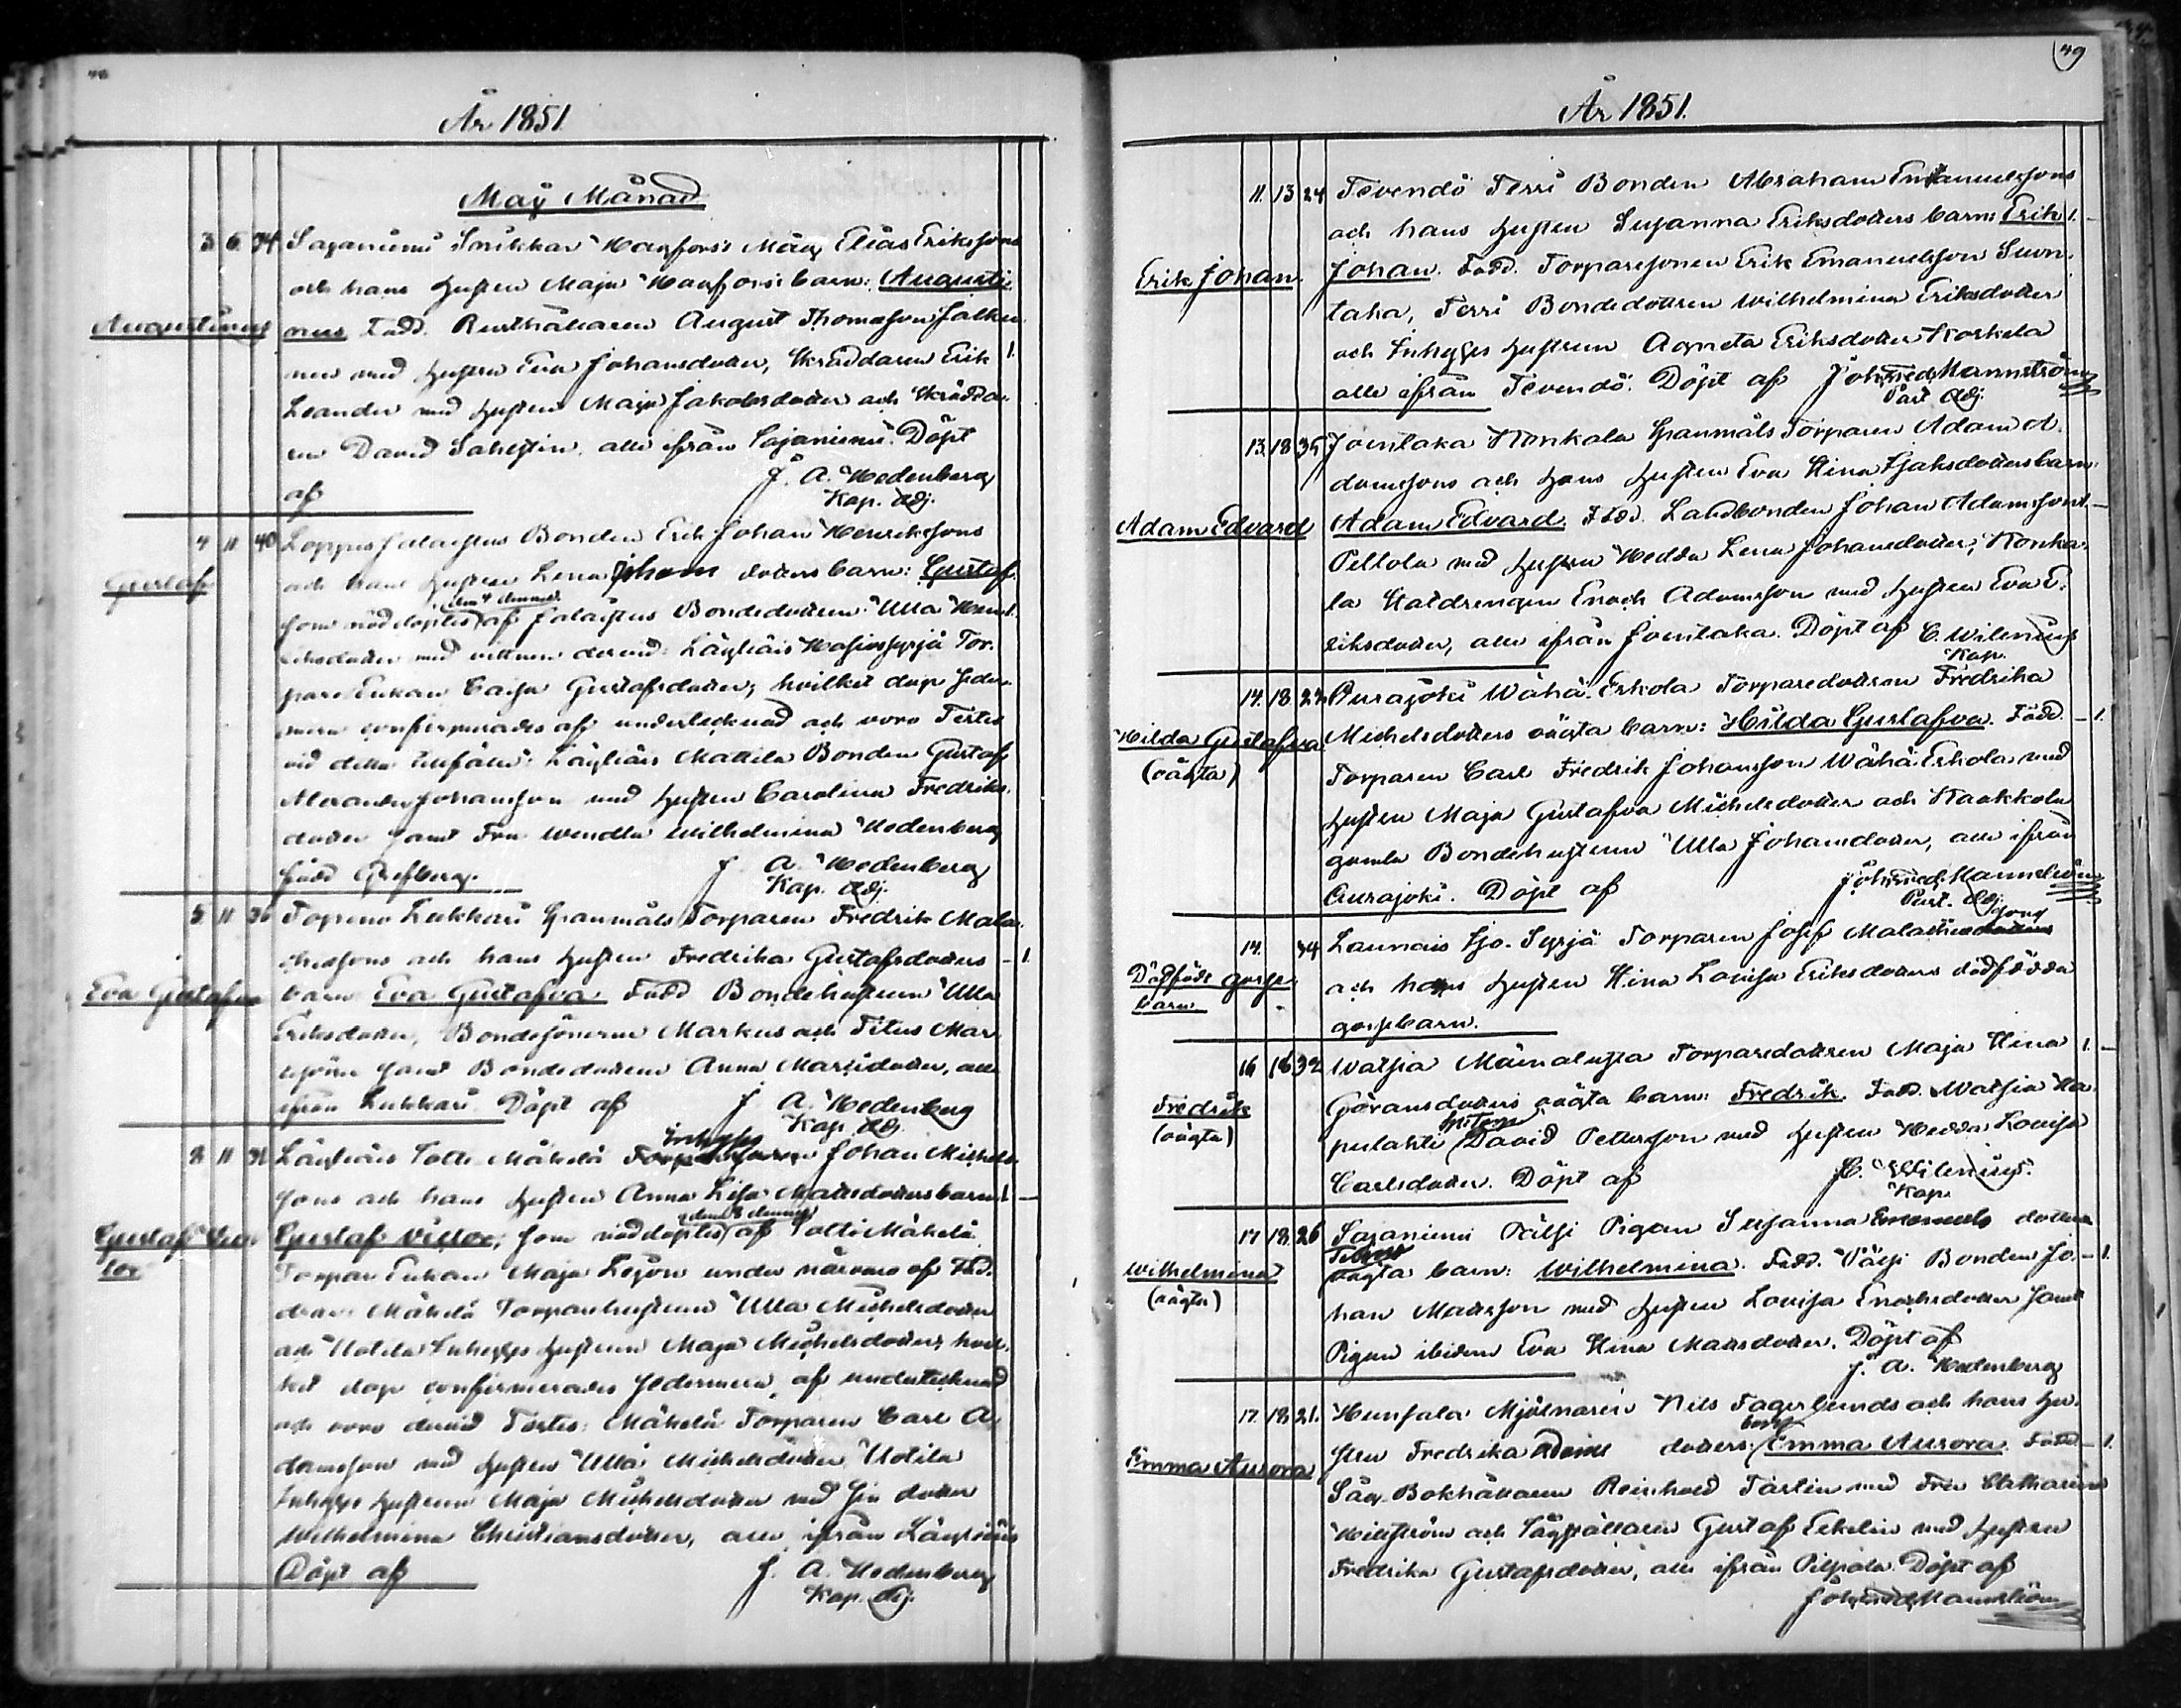 48
År 1851.
Maÿ Månad
3 6 34 Sajaniemi Snikkar Hagfors's Måg Elias Erikssons
och hans hustru Maja Hagfors's barn: Augusti-
Augustinus
nus Fadd. Rusthållaren August Thomasson Jalka-
nen med hustru Eva Johansdotter, Skräddaren Erik 1.
Leander med hustru Maja Jakobsdotter och Skrädda-
ren David Sahlstin, alla ifrån Sajaniemi. Döpt
af J. A. Hedenberg
Kap. Adj.
4 11 40 Loppis Jalachus Bonden Erik Johan Henrikssons
Gustaf
och hans hustru Lena Johans dotters barn: Gustaf
den 4 dennes
som nöddöptes af Jalachus Bondedottren Ulla Hen- 1.
riksdotter med vittnen dervid: Läyliäis Torpare
Enkan Caisa Gustafsdotter; hvilket dop seder-
mera confirmerades af undertecknad och voro Testes
vid detta tillfälle: Läyliäis Mattila Bonden Gustaf
Alexander Johansson med hustru Carolina Fredriks-
dotter samt Fru Wendla Wilhelmina Hedenberg
född Grefberg. J. A. Hedenberg
Kap. Adj.
5 11 36 Topeno Lukkari Spanmåls Torparen Fredrik Mala-
chissons och hans hustru Fredrika Gustafsdotters – 1.
Eva Gustafva
barn Eva Gustafva Fadd Bondehustrun Ulla
Eriksdotter, Bondesönerne Markus och Titus Mar-
tssöner samt Bondedottren Anna Martsdotter, alla
ifrån Lukkari Döpt af J. A. Hedenberg
Kap. Adj.
8 11 Läyliäis Totti Mäkelä Inhyses Johan Michels-
sons och hans hustru Anna Lisa Mattsdotters barn: 1. –
den 8 dennes
Gustaf Victor
Gustaf Victor; som nöddöptes af Totti Mäkelä
Torpar Enkan Maja under närvaro af Fad-
drar: Mäkelä Torparehustrun Ulla Michelsdotter
och Uotila Inhyses hustrun Maja Michelsdotter, hvil-
ket dop confirmerades sedermera af undertecknad
och voro dervid Testes: Mäkelä Torparen Carl A-
damsson med hustru Ulla Michelsdotter, Uotila
Inhyses hustrun Maja Michelsdotter med sin dotter
Wilhelmina Christiansdotter, alla ifrån Läyliäis
Döpt af J. A. Hedenberg
Kap. Adj.
49
År 1851.
11. 13 24 Tevendö Terri Bonden Abraham Emanuelssons
och hans hustru Susanna Eriksdotters barn: Erik 1. –
Erik Johan.
Johan. Fadd. Torparesonen Erik Emanuelsson Suon-
taka, Terri Bondedottren Wilhelmina Eriksdotter
och Inhyses hustrun Agneta Eriksdotter Korkela
alla ifrån Tevendö. Döpt af Joh. Fred. Mannström
Past. Adj.
13. 18 35 Joentaka Konkala Spanmåls Torparen Adam A-
damssons och hans hustru Eva Stina Isaksdotters barn:
Adam Edvard
Adam Edvard. Fadd. Landbonden Johan Adamsson 1. –
Peltola med hustru Hedda Lena Johansdotter; Konka-
la Statdrengen Enoch Adamsson med hustru Eva E-
riksdotter, alla ifrån Joentaka. Döpt af C. Wilenius
Kap.
14. 18. 22 Ourajoki Wähä Erkola Torparedottren Fredrika
Hilda Gustafva
(oägta)
Michelsdotters oägta barn: Hilda Gustafva. Fadd. – 1.
Torparen Carl Fredrik Johansson Wähä Erkola med
hustru Maja Gustafva Michelsdotter och Kaakkola
gamla Bondehustrun Ulla Johansdotter, alla ifrån
Ourajoki. Döpt af Joh. Fred. Mannström
Past. Adj.
14. 34 Launois Iso-Syrjä Torparen Josef Malachiassons
Dödfödt gosse-
barn.
och hans hustru Stina Lovisa Eriksdotters dödfödda
gossebarn.
16 18 32 Watsia Mäenalusta Torparedottren Maja Stina 1. –
Fredrik
(oägta)
Göransdotters oägta barn: Fredrik. Fadd. Watsia Ha-
pulahti David Pettersson med hustru Hedda Lovisa
Carlsdotter. Döpt af C. Wilenius.
Kap.
17 18. 26 Sajaniemi Pälsi Pigan Susanna Emanuels dotters
Wilhelmina
(oägta)
oägta barn: Wilhelmina. Fadd. Pälsi Bonden Jo- – 1.
han Mattsson med hustru Lovisa Enochsdotter samt
Pigan ibidem Eva Stina Mattsdotter. Döpt af
J. A. Hedenberg
17. 18 21. Hunsala Mjölnaren Nils Fagerlunds och hans hu-
barn
Emma Aurora
stru Fredrika dotters Emma Aurora. Fadd – 1.
Såg-Bokhållaren Reinhold Tastin med Fru Catharina
Hillström och Sågställaren Gustaf Eekelin med hustru
Fredrika Gustafsdotter, alla ifrån Pilpala. Döpt af
Joh. Fred. Mannström